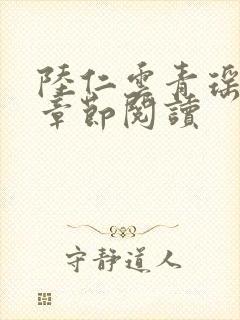 陸仁雲青瑶
章節閱讀
守靜道人